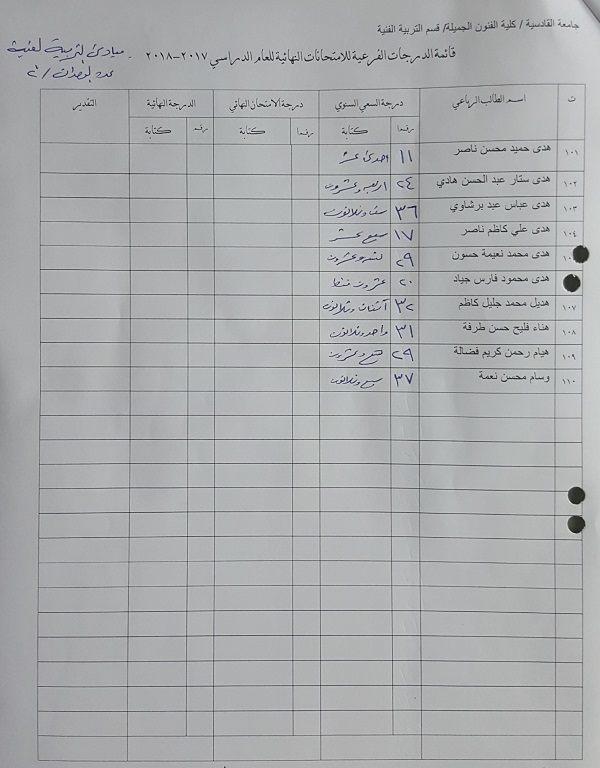 جامعة القادسية / كلية الفنون الجميلة/ قسم التربية الفنية
قائمة الدرجات الفرعية للامتحانات النهائية للعام الدراسي ٢٠١٧-٢٠١٨
مبادئ التربية الفنية
عدد الوحدات / ٢
ت اسم الطالب الرباعي درجة السعي السنوي درجة الامتحان النهائي الدرجة النهائية التقدير
رقما كتابة رقما كتابة رقما كتابة
١٠١ هدى حميد محسن ناصر ١١ احدى عشر
١٠٢ هدى ستار عبد الحسن هادي ٢٤ اربع وعشرون
١٠٣ هدى عباس عبد برشاوي ٣٦ ست وثلاثون
١٠٤ هدى علي كاظم ناصر ١٧ سبع عشر
هدى محمد نعيمة حسون ٢٩ تسع وعشرون
هدى محمود فارس جياد ٢٠ عشرون فقط
١٠٧ هديل محمد جليل كاظم ٣٢ أثنان وثلاثون
١٠٨ هناء فليح حسن طرفة ٣١ واحد وثلاثون
١٠٩ هيام رحمن كريم فضالة ٢٩ تسع وعشرون
١١٠ وسام محسن نعمة ٣٧ سبع وثلاثون